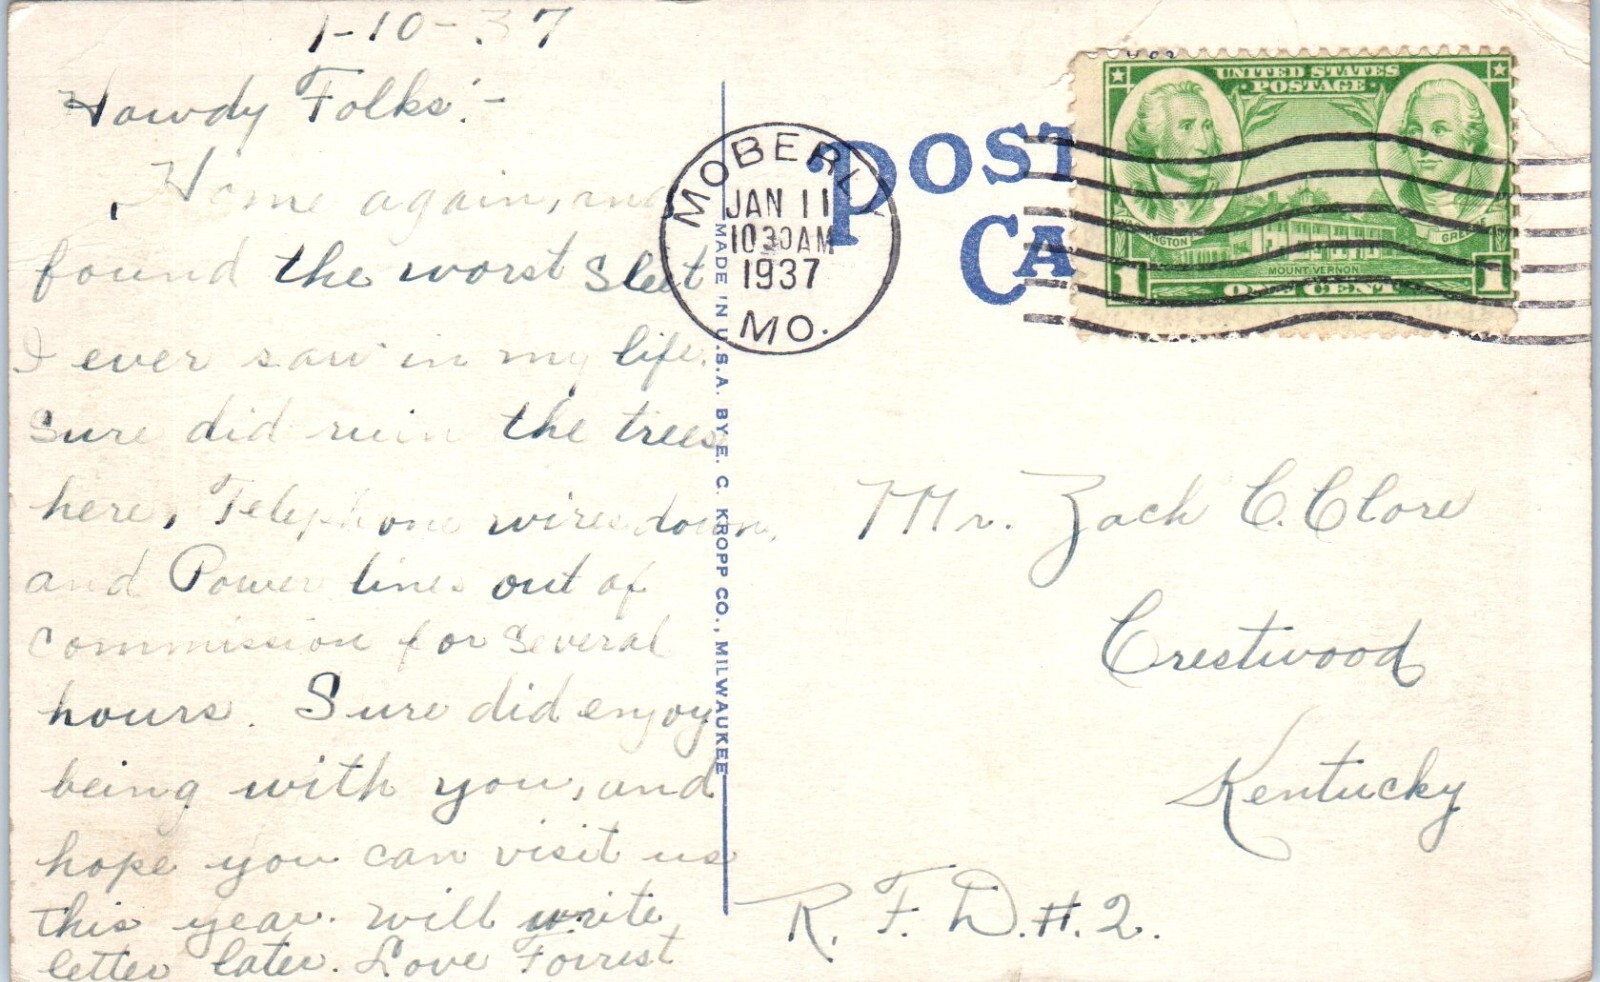 1-10-37
Howdy Folks:-
Home again, and
found the worst sleet
I ever saw in my life.
Sure did ruin the trees
here, Telephone wires down,
and Power lines out of
Commission for several
hours. Sure did enjoy
being with you, and
hope you can visit us
this year. will write
letter later. Love Forrest
MADE IN U.S.A. BY E. C. KROPP CO., MILWAUKEE
MOBERLY
JAN 11
1030AM
1937
MO.
POST
CA
UNITED STATES
POSTAGE
WASHINGTON
GREENE
MOUNT VERNON
1 ONE CENT 1
Mr. Zach C. Clore
Crestwood
Kentucky
R.F.D.#.2.